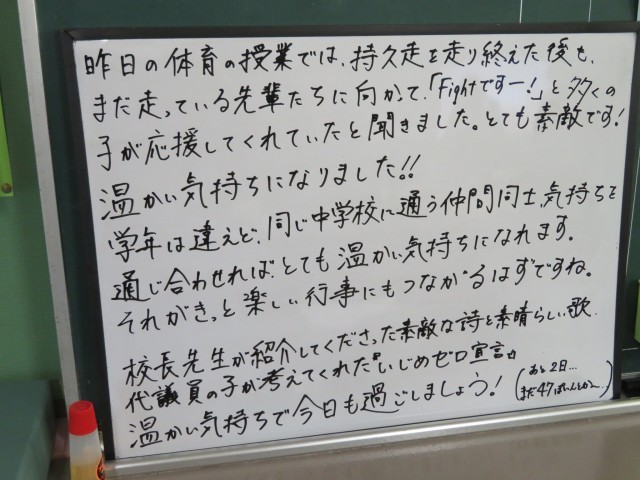 昨日の体育の授業では、持久走を走り終えた後も、
まだ走っている先輩たちに向かって、「Fightですー!」と多くの
子が応援してくれていたと聞きました。とても素敵です!
温かい気持ちになりました!!
学年は違えど、同じ中学校に通う仲間同士、気持ちを
通じ合わせれば、とても温かい気持ちになれます。
それがきっと楽しい行事にもつながるはずですね。
校長先生が紹介してくださった素敵な詩と素晴らしい歌、
代議員の子が考えてくれた『いじめゼロ宣言』
温かい気持ちで今日も過ごしましょう!
(あと2日...
まだ47